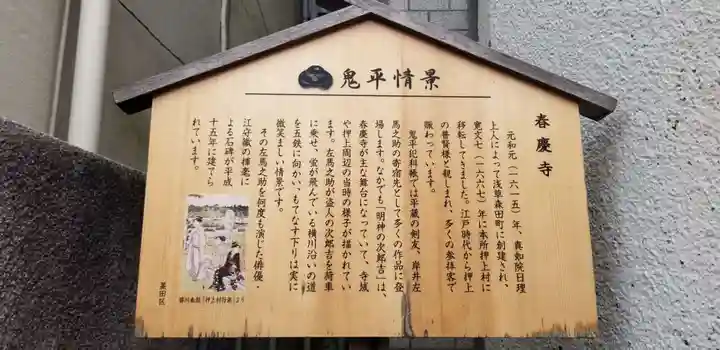 鬼平情景
春慶寺
元和元（一六一五）年、真如院日理
上人によって浅草森田町に創建され、
寛文七（一六六七）年に本所押上村に
移転してきました。江戸時代から押上
の普賢様と親しまれ、多くの参拝客で
賑わっています。
鬼平犯科帳では平蔵の剣友、岸井左
馬之助の寄宿先として多くの作品に登
場します。なかでも「明神の次郎吉」は、
春慶寺が主な舞台になっていて、寺域
や押上周辺の当時の様子が描かれてい
ます。左馬之助が盗人の次郎吉を荷車
に乗せ、蛍が飛んでいる横川沿いの道
を五鉄に向かい、もてなす下りは実に
微笑ましい情景です。
その左馬之助を何度も演じた俳優・
江守徹の揮毫に
よる石碑が平成
十五年に建てら
れています。
勝川春潮「押上村行楽」より
墨田区